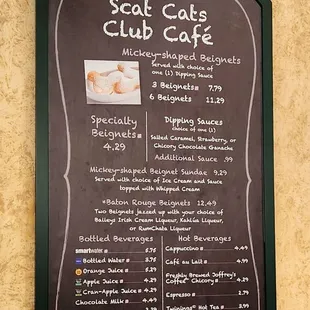 Scat Cats
Club Café
Mickey-shaped Beignets
Served with choice of
one (1) Dipping Sauce
3 Beignets 7.79
6 Beignets 11.29
Specialty
Beignets
4.29
Dipping Sauces
choice of one (1)
Salted Caramel, Strawberry, or
Chicory Chocolate Ganache
Additional Sauce .99
Mickey-shaped Beignet Sundae 9.29
Served with choice of Ice Cream and Sauce
topped with Whipped Cream
*Baton Rouge Beignets 12.49
Two Beignets jazzed up with your choice of
Baileys Irish Cream Liqueur, Kahlúa Liqueur,
or RumChata Liqueur
Bottled Beverages
smartwater 5.75
Bottled Water 3.75
Orange Juice 5.29
Apple Juice 4.29
Cran-Apple Juice 4.29
Chocolate Milk 4.49
Hot Beverages
Cappuccino 4.49
Café au Lait 4.99
Freshly Brewed Joffrey's
Coffee Chicory 4.29
Espresso 2.79
Twinings Hot Tea 3.99